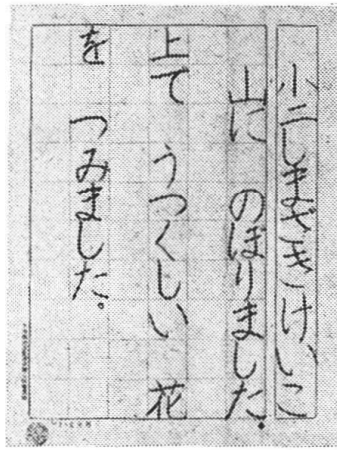 小二しまざきけいこ
山に のぼりました。
上て うつくしい 花
を つみました。